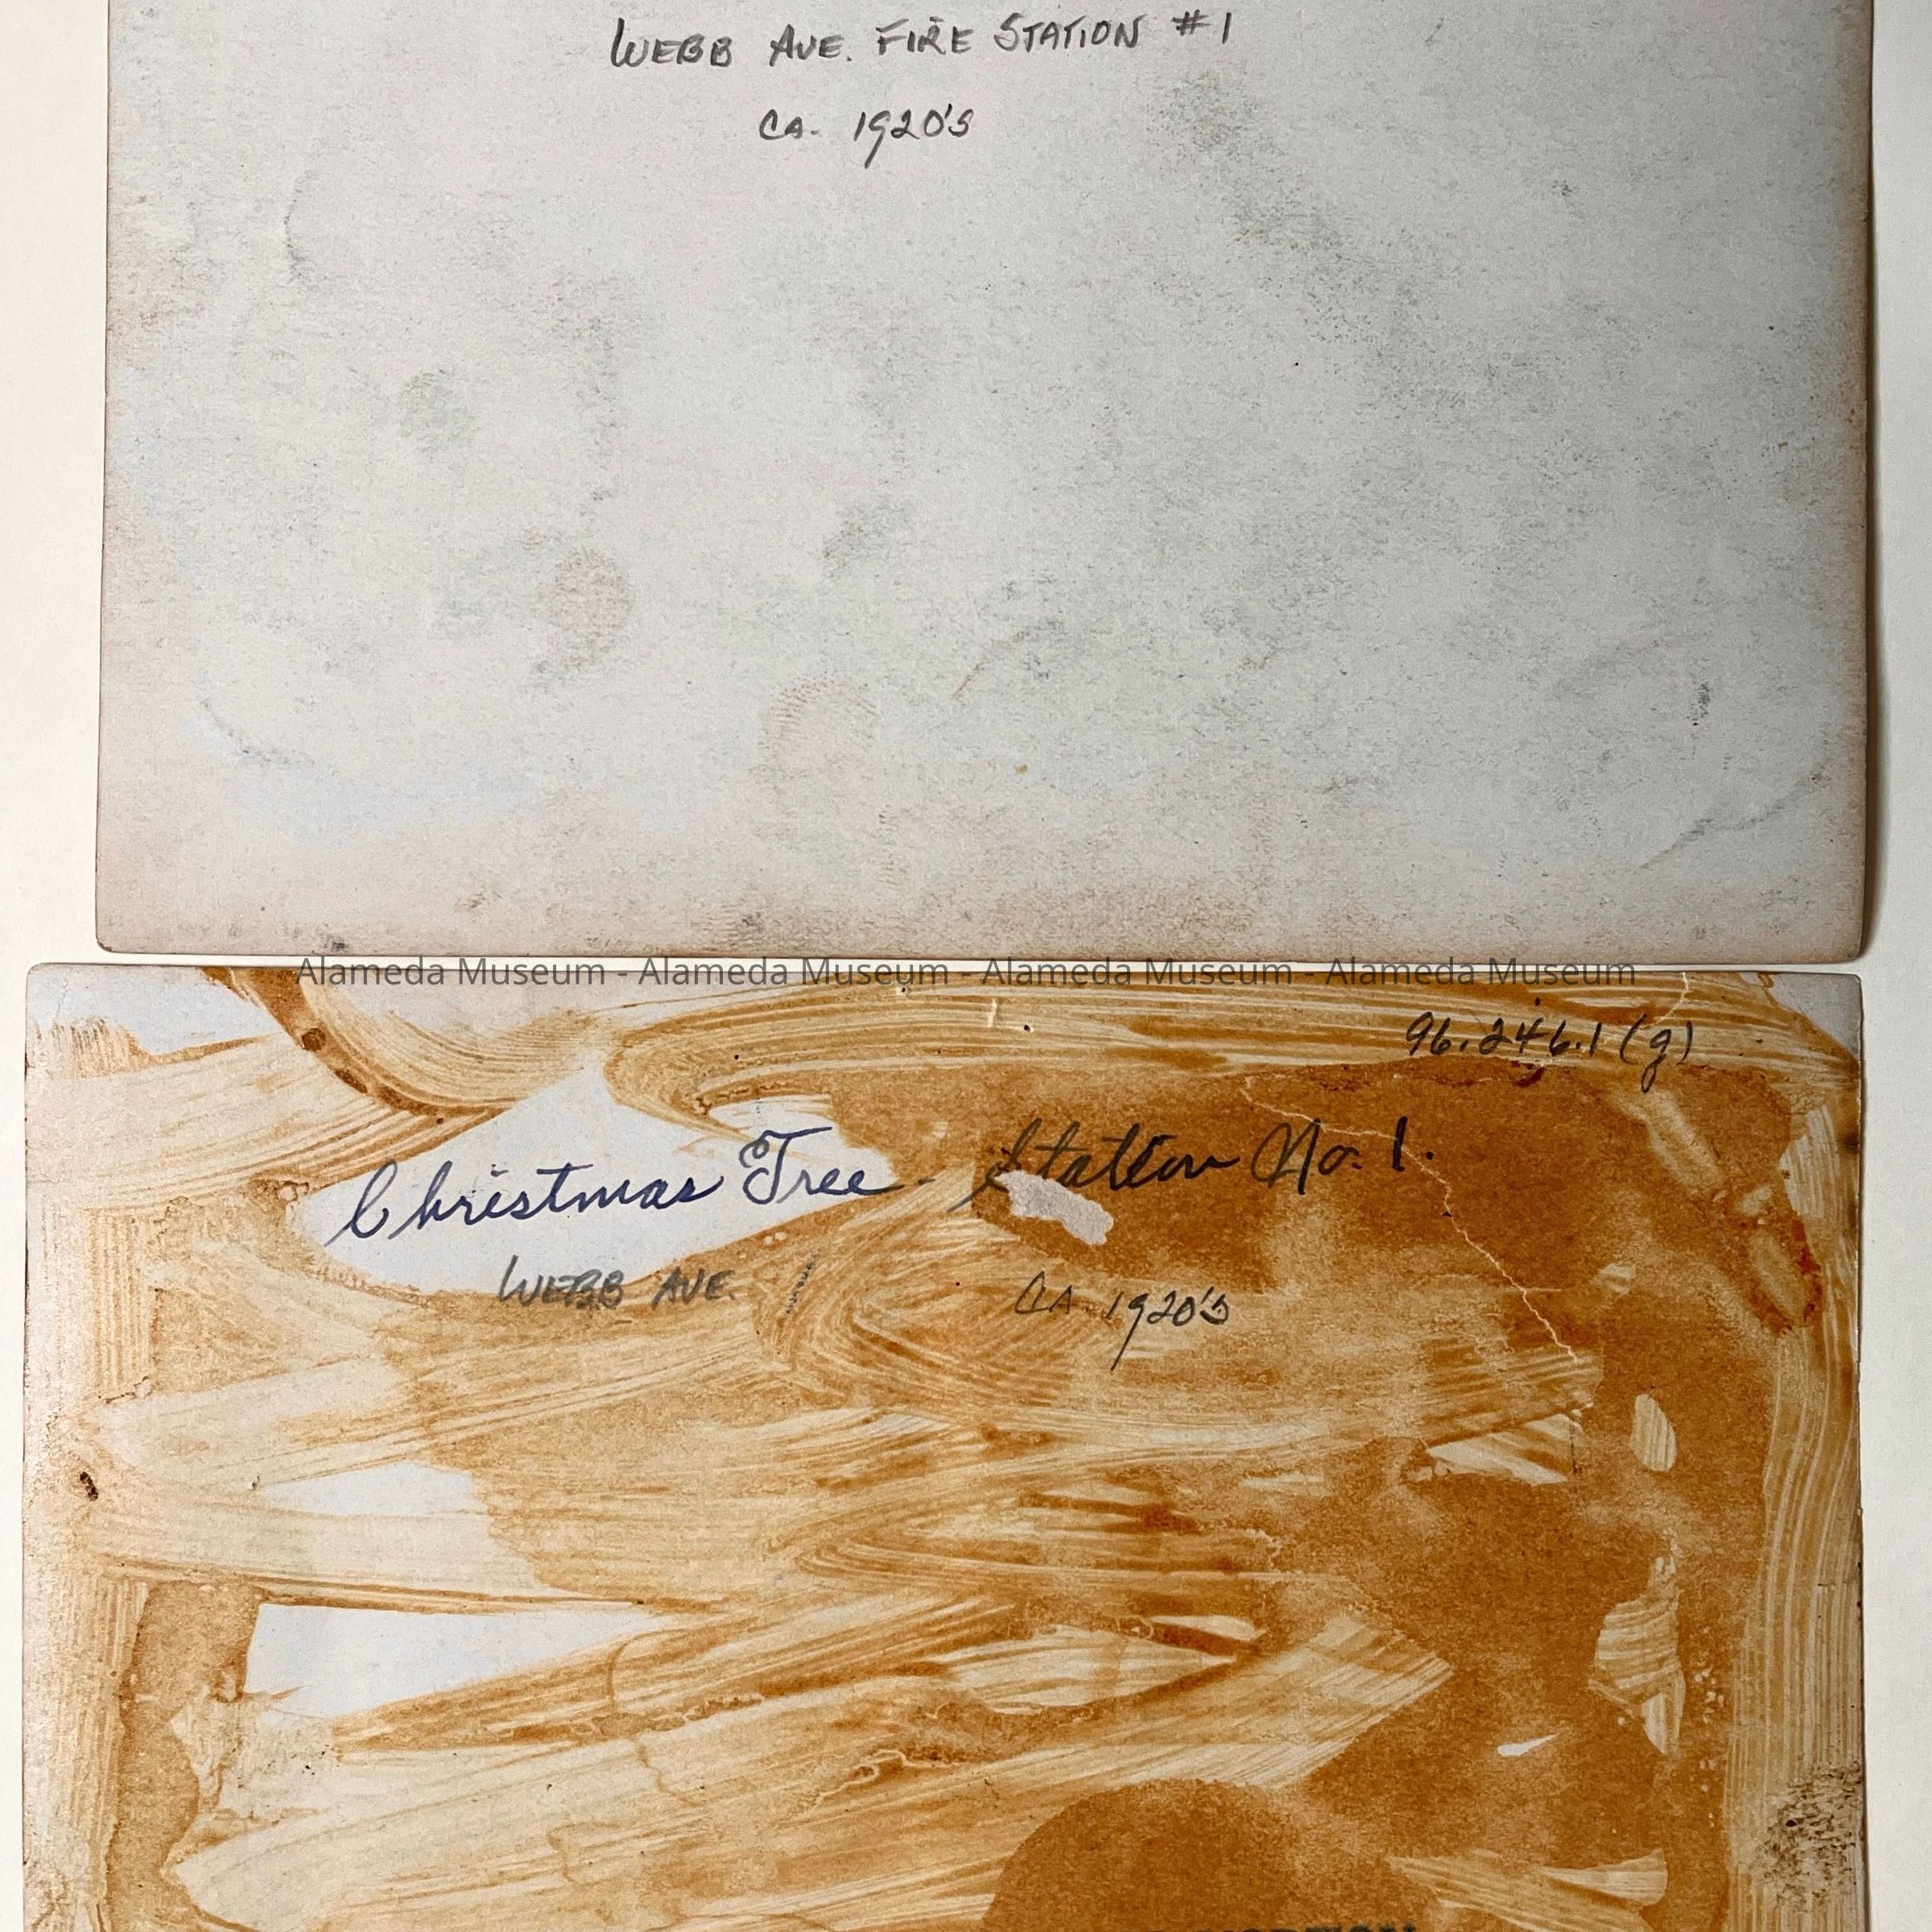 WEBB AVE. FIRE STATION #1
CA. 1920'S
Alameda Museum - Alameda Museum - Alameda Museum - Alameda Museum
96.246.1 (g)
Christmas Tree - Station No. 1.
WEBB AVE. CA. 1920'S